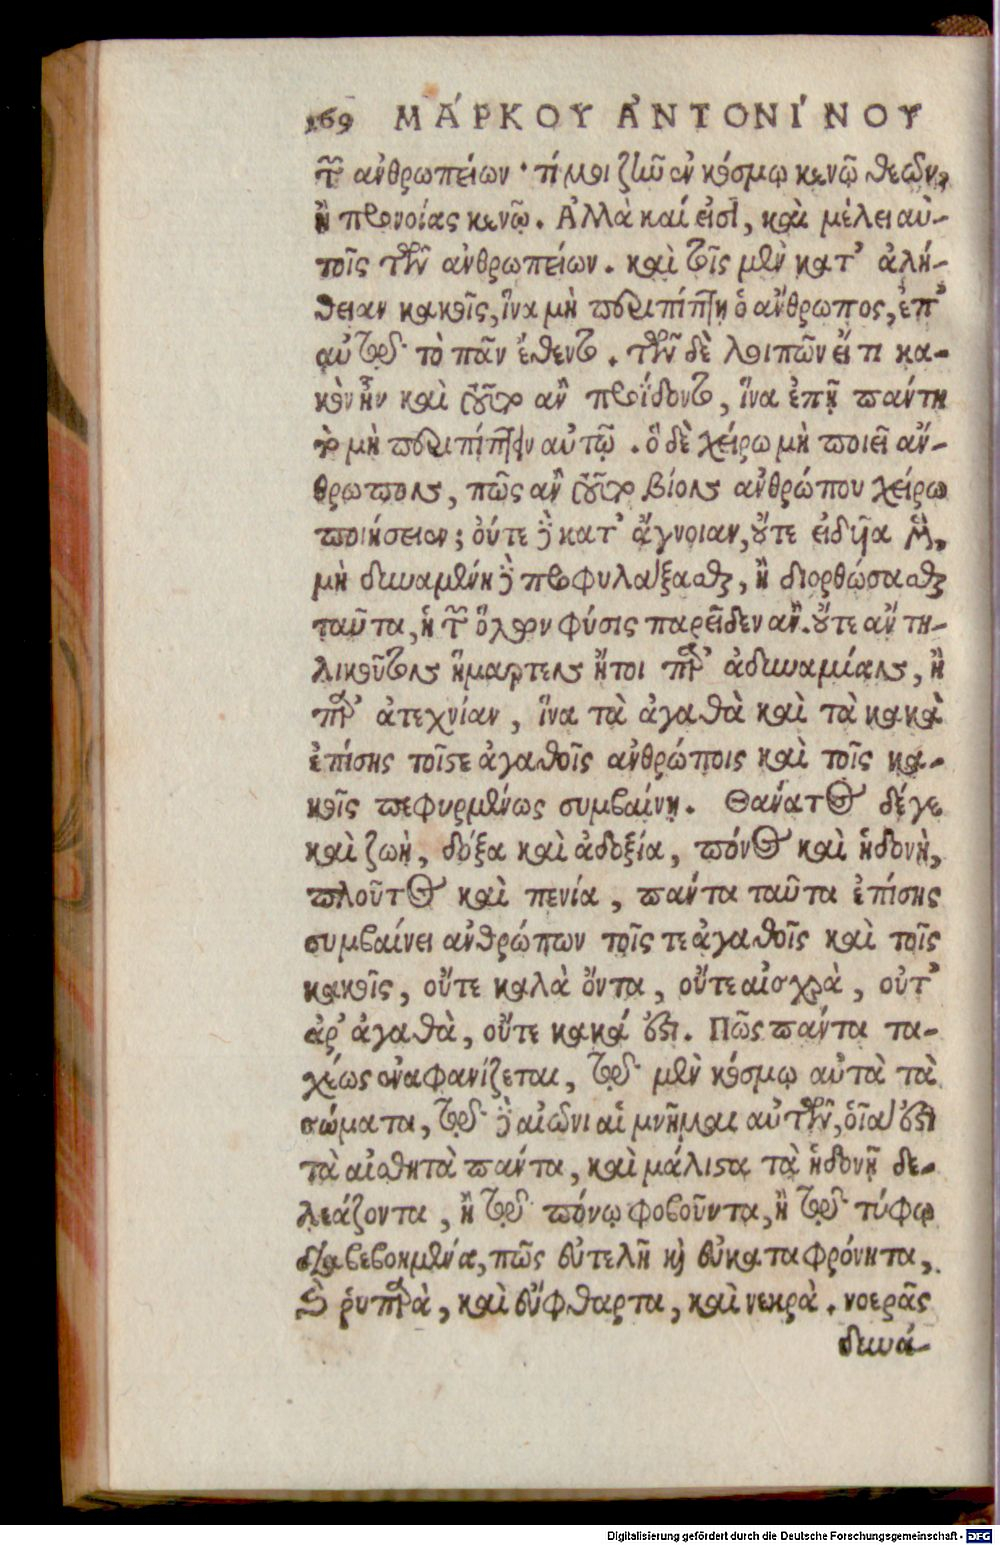 169 ΜΆΡΚΟΥ ἈΝΤΟΝΊΝΟΥ
τῶν ἀνθρωπείων · τί μοι ζῆν ἐν κόσμῳ κενῷ θεῶν,
ἢ προνοίας κενῷ. Ἀλλὰ καί εἰσὶ, καὶ μέλει αὐ-
τοῖς τῶν ἀνθρωπείων. καὶ τοῖς μὲν κατ’ ἀλή-
θειαν κακοῖς, ἵνα μὴ περιπίπτῃ ὁ ἄνθρωπος, ἐπ’
αὐτῷ τὸ πᾶν ἔθεντο. τῶν δὲ λοιπῶν εἴ τι κα-
κὸν ἦν καὶ τοῦτο ἂν προΐδοντο, ἵνα ἐπῇ πάντη
τὸ μὴ περιπίπτειν αὐτῷ. ὃ δὲ χείρω μὴ ποιεῖ ἄν-
θρωπον, πῶς ἂν τοῦτο βίον ἀνθρώπου χείρω
ποιήσειεν; οὔτε δὲ κατ’ ἄγνοιαν, οὔτε εἰδυῖα μὲν,
μὴ δυναμένη δὲ προφυλάξασθαι, ἢ διορθώσασθαι
ταῦτα, ἡ τῶν ὅλων φύσις παρεῖδεν ἄν. οὔτε ἂν τη-
λικοῦτον ἥμαρτεν ἤτοι παρ’ ἀδυναμίαν, ἢ
παρ’ ἀτεχνίαν, ἵνα τὰ ἀγαθὰ καὶ τὰ κακὰ
ἐπίσης τοῖς τε ἀγαθοῖς ἀνθρώποις καὶ τοῖς κα-
κοῖς πεφυρμένως συμβαίνῃ. Θάνατος δέ γε
καὶ ζωὴ, δόξα καὶ ἀδοξία, πόνος καὶ ἡδονὴ,
πλοῦτος καὶ πενία, πάντα ταῦτα ἐπίσης
συμβαίνει ἀνθρώπων τοῖς τε ἀγαθοῖς καὶ τοῖς
κακοῖς, οὔτε καλὰ ὄντα, οὔτε αἰσχρὰ, οὔτ’
ἄρ’ ἀγαθὰ, οὔτε κακά ἐστι. Πῶς πάντα τα-
χέως ἐναφανίζεται, τῷ μὲν κόσμῳ αὐτὰ τὰ
σώματα, τῷ δὲ αἰῶνι αἱ μνῆμαι αὐτῶν, οἷα ἐστι
τὰ αἰσθητὰ πάντα, καὶ μάλιστα τὰ ἡδονῇ δε-
λεάζοντα, ἢ τῷ πόνῳ φοβοῦντα, ἢ τῷ τύφῳ
διαβεβοημένα, πῶς εὐτελῆ καὶ εὐκαταφρόνητα,
καὶ ῥυπαρὰ, καὶ εὔφθαρτα, καὶ νεκρὰ. νοερᾶς
δυνά-
Digitalisierung gefördert durch die Deutsche Forschungsgemeinschaft - DFG